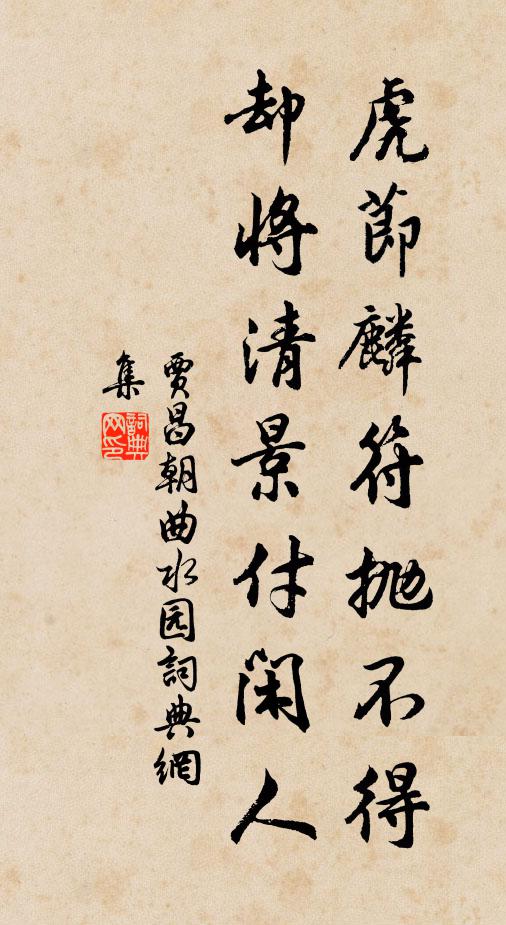 虎節麟符抛不得
却將清景付閑人
賈昌朝曲水园詞典網
集
詞典网印